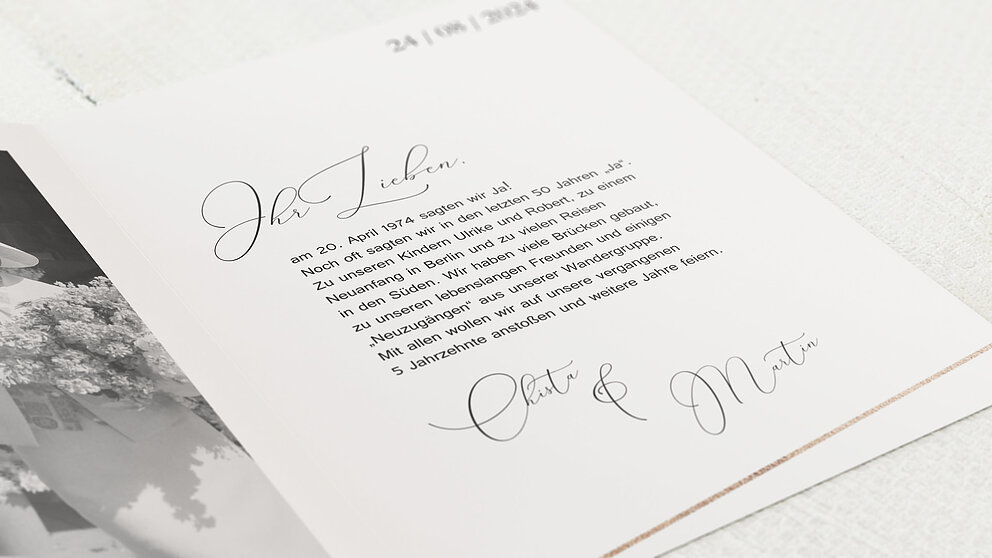 24 | 08 | 2024
Ihr Lieben,
am 20. April 1974 sagten wir Ja!
Noch oft sagten wir in den letzten 50 Jahren „Ja“.
Zu unseren Kindern Ulrike und Robert, zu einem
Neuanfang in Berlin und zu vielen Reisen
in den Süden. Wir haben viele Brücken gebaut,
zu unseren lebenslangen Freunden und einigen
„Neuzugängen“ aus unserer Wandergruppe.
Mit allen wollen wir auf unsere vergangenen
5 Jahrzehnte anstoßen und weitere Jahre feiern.
Christa & Martin